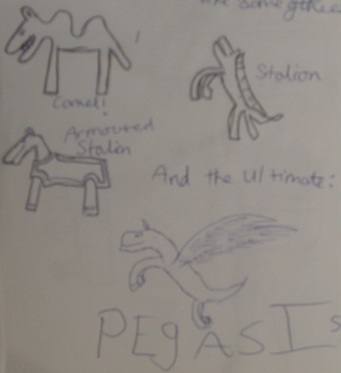 are some others
Camel!
Stalion
Armoured
Stalion
And the Ultimate:
PEGASIs